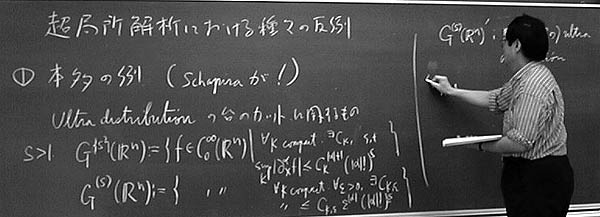 超局所解析における種々の反例
① 本多の例 (Schapiraが!)
Ultra distribution の台のカットに関するもの
S>1 G^{s}(ℝⁿ):={f∈C^∞(ℝⁿ)| ∀K compact, ∃C_K, s.t
sup_K|∂_x^α f| ≤ C_K^{|α|+1}(|α|!)^s }
G^(s)(ℝⁿ):={ 〃 〃 ∀K compact, ∀ε>0, ∃C_{K,ε}
〃 ≤ C_{K,ε} ε^{|α|}(|α|!)^s }
G^(s)(ℝⁿ)' : ultra